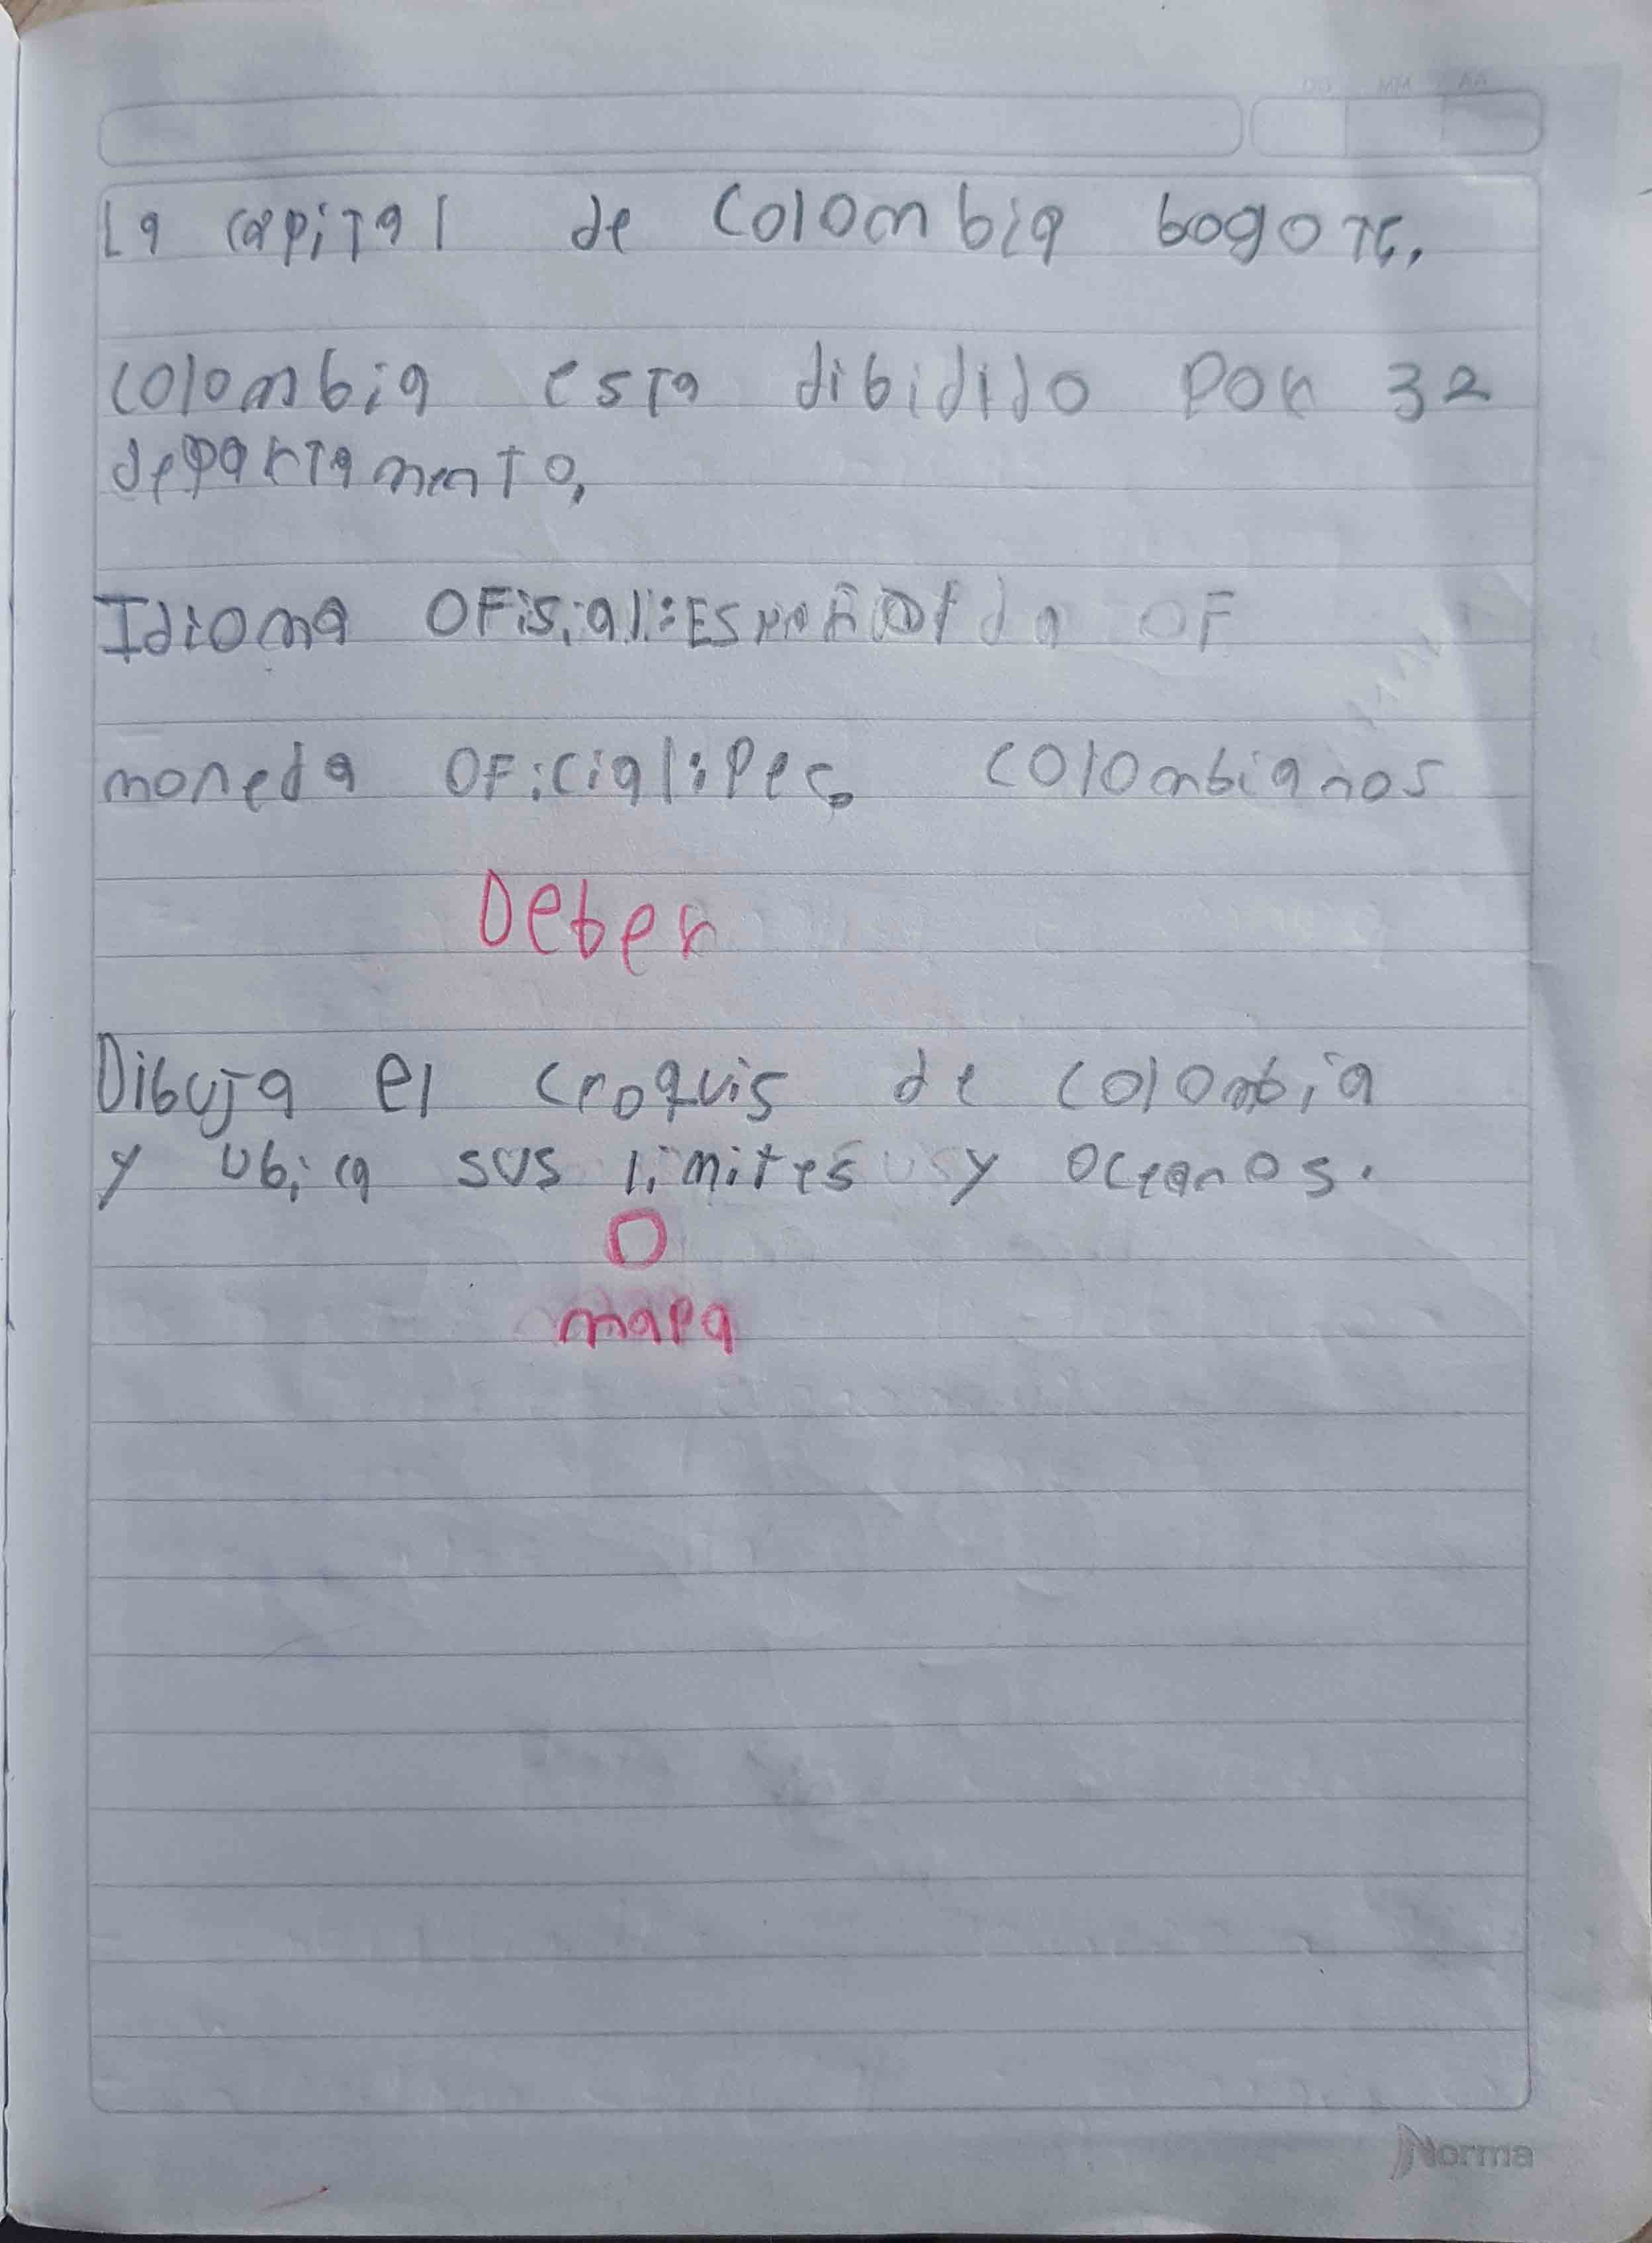 La capital de Colombia bogota.
colombia esta dibidido por 32
departamento,
Idioma OFisial: Español da OF
moneda OFicial: Peso colombianos
Deber
Dibuja el croquis de colombia
y ubica sus limites y oceanos.
O
mapa
Norma